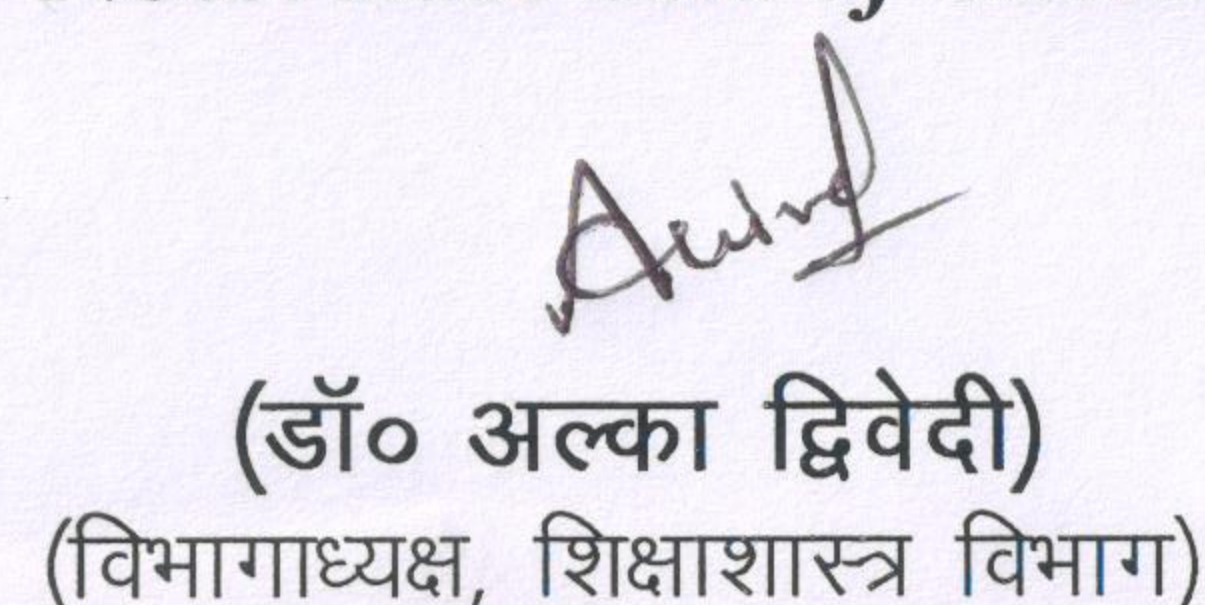 (डॉ० अल्का द्विवेदी)
(विभागाध्यक्ष, शिक्षाशास्त्र विभाग)